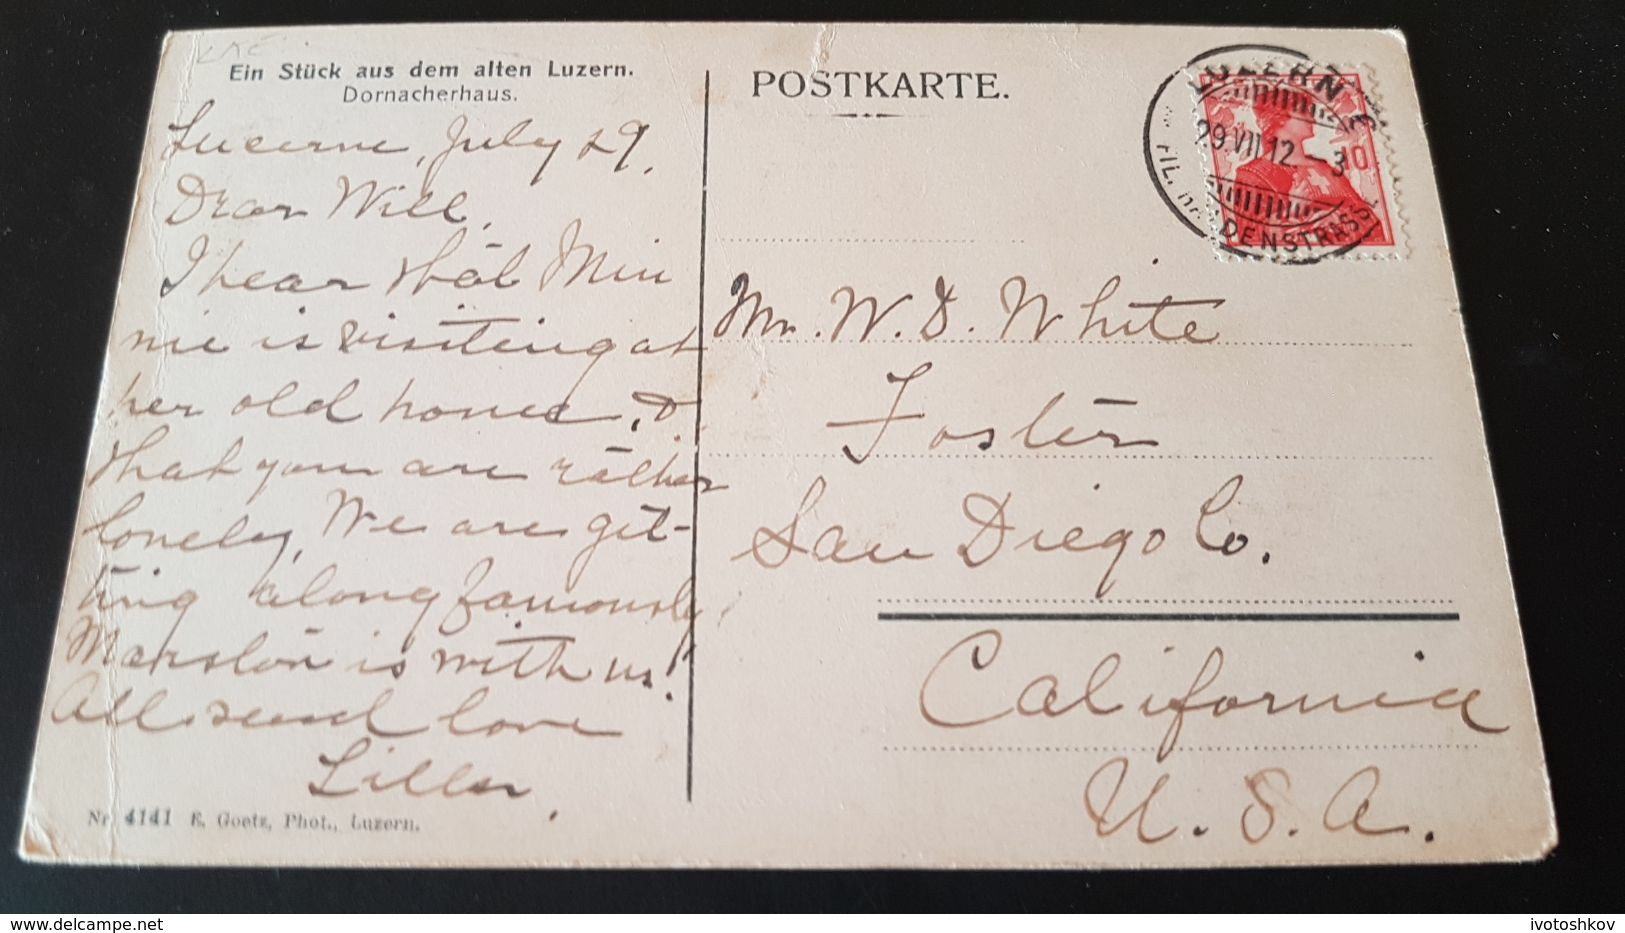 Ein Stück aus dem alten Luzern.
Dornacherhaus.
Lucerne, July 29.
Dear Will,
I hear that Min
nie is visiting at
her old home, &
that you are rather
lonely, We are get-
ting along famously
Marston is with us!
All send love
Nr. 4141 E. Goetz, Phot., Luzern.
POSTKARTE.
LUZERN
29.VII.12.-3
10
Mr. W. D. White
Foster
San Diego Co.
California
U. S. A.
ivotoshkov